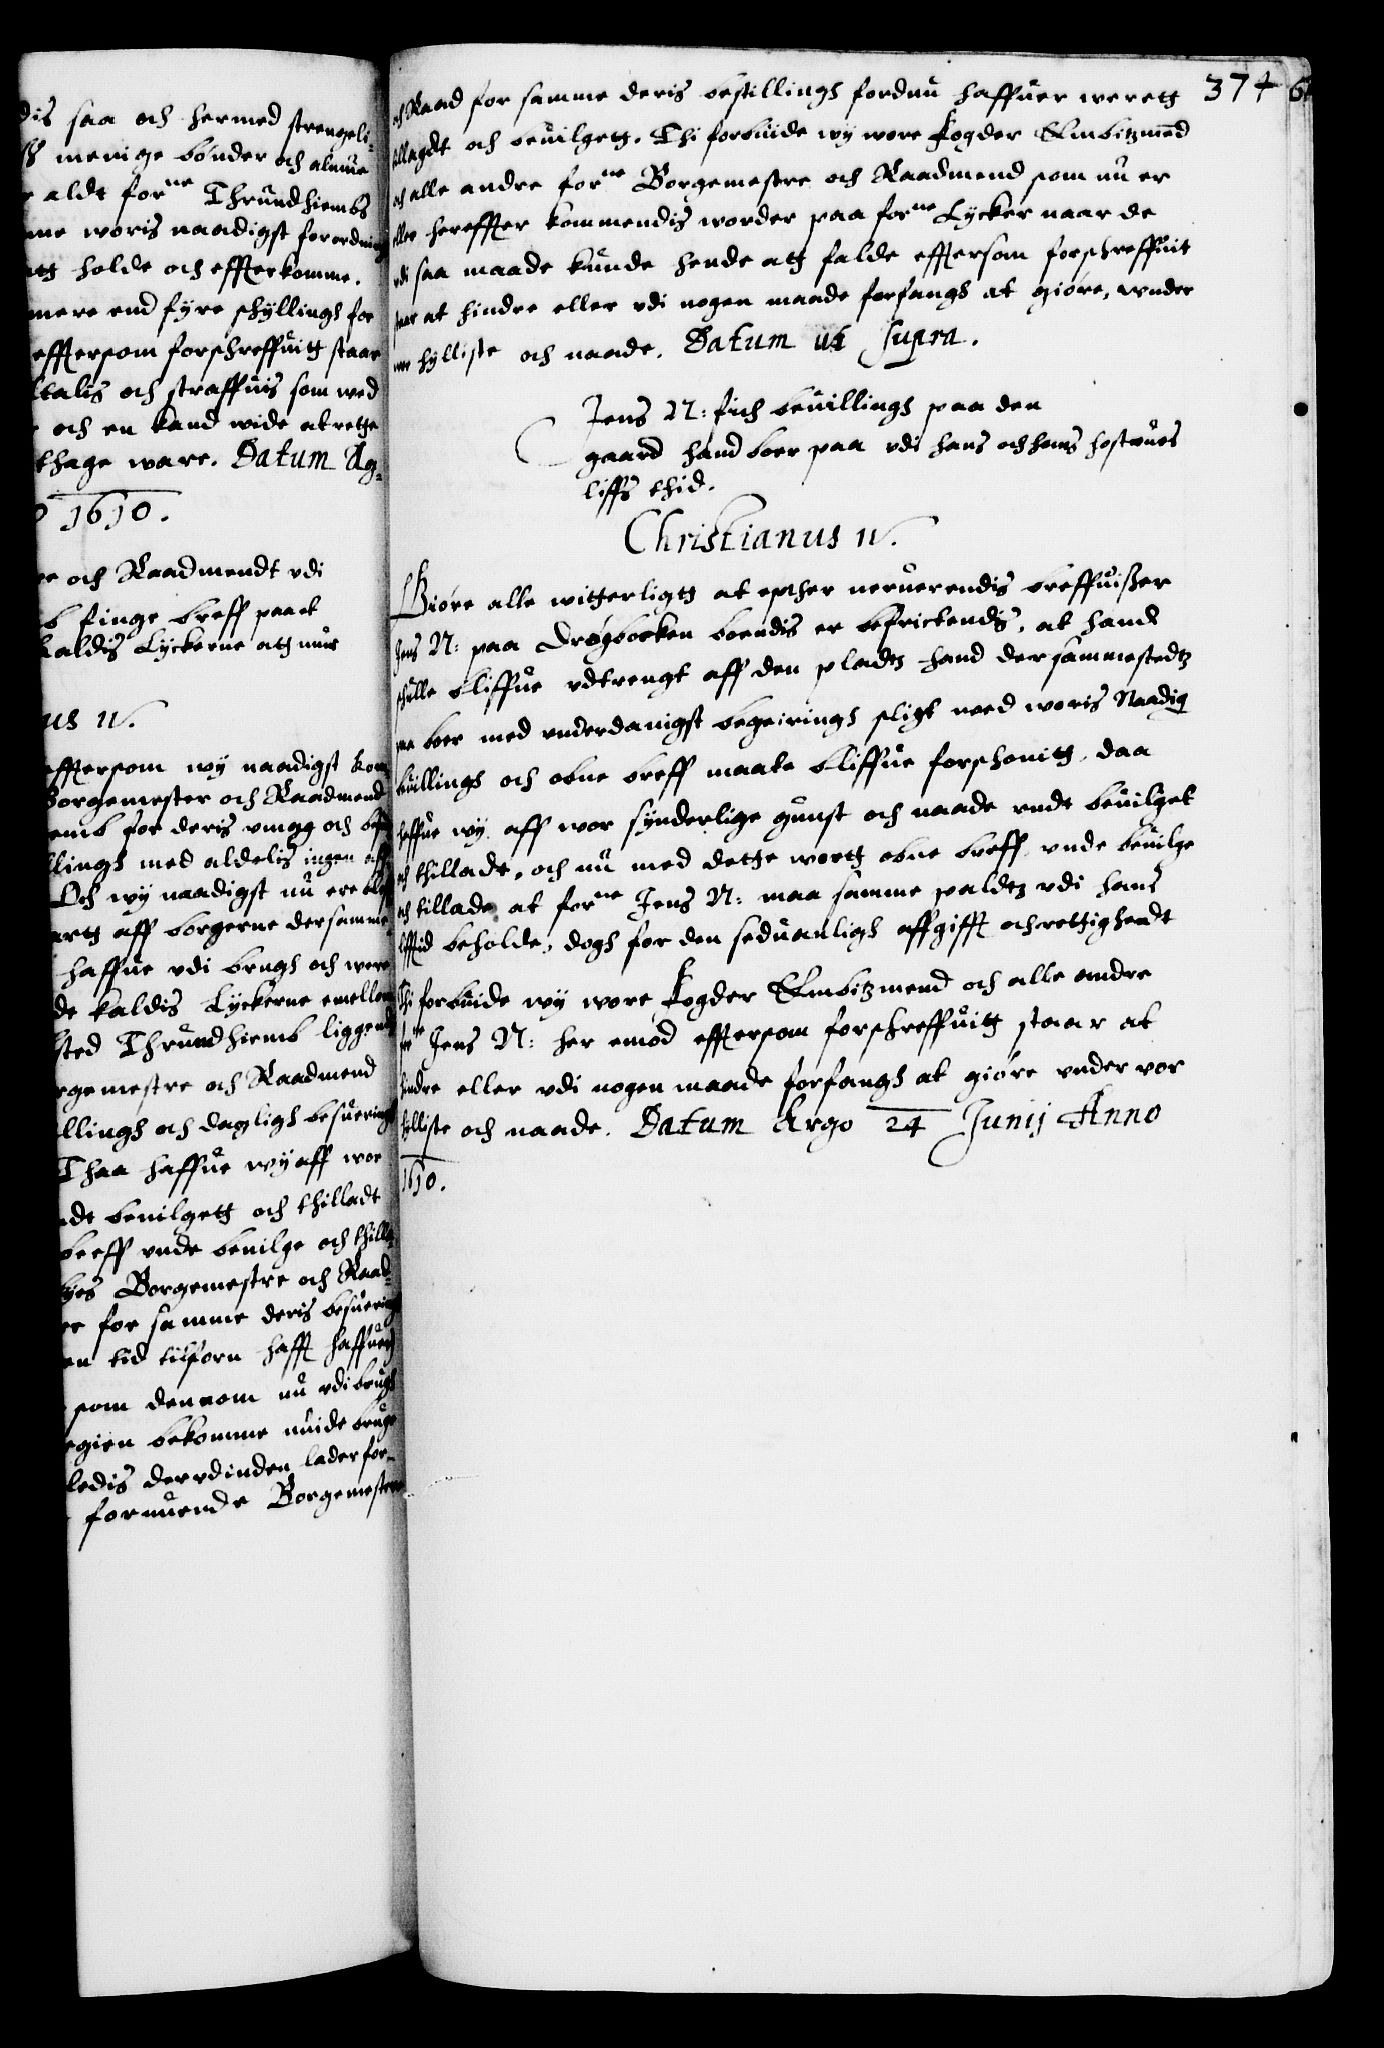 dis saa och hermed strengeli-
menige bønder och almue
aldt forne Thrundhiembs
woris naadigst forordning
holde och effterkomme.
mere end fyre schyllingh for
efftersom forschreffuitt staar
straffuis som wed
och en kand wide at rette
thage ware. Datum Ag-
1610.
och Raadmendt vdi
finge breff paa et
kaldis Lyckerne
us 4.
efftersom wy naadigst
Borgemester och Raadmend
for deris vmag och
med aldelis ingen
Och wy naadigst nu ere
aff borgerne dersamme
haffue vdi brugh och were
de kaldis Lyckerne emellem
sted Thrundhiemb liggend
Borgemestre och Raadmend
och dagligh besuering
Thaa haffue wy aff wor
beuilgett och thilladt
breff vnde beuilge och thill
Borgemestre och Raad-
for samme deris besuering
tid tilforn hafft haffuer
som dennom nu vdi brugh
bekomme nuide bruge
ledis der vdinden lader for-
fornuende Borgemestere
374
och Raad for samme deris bestillingh fordnu haffuer werett
tillagdt och beuilgett. Thi forbiude wy wore fogder Embitzmend
och alle andre forne Borgemestre och Raadmend som nu er
eller hereffter kommendis worder paa forne Lycker naar de
vdi saa maade kunde hende att falde efftersom forschreffuit
staar at hindre eller vdi nogen maade forfangh at giøre, wnder
wor hylliste och naade. Datum ut supra.
Jens N: fich beuillingh paa den
gaard hand boer paa vdi hans och hans hostrues
liffs thid.
Christianus 4.
Giøre alle witterligt at epther neruerendis breffuißer
Jens N: paa Drøgbocken boendis er befrictendis, at hand
schulle bliffue vdtrengt aff den pladtz hand dersammestedtz
paa boer med vnderdanigst begeiringh sligt med woris Naadig
beuillingh och obne breff maate bliffue forschonitt, daa
haffue wy aff wor synderlige gunst och naade vndt beuilget
och thilladt, och nu med dette wortt obne breff vnde beuilge
och tillade at forne Jens N: maa samme paldtz vdi hans
lifftid beholde, dogh for den seduanligh affgifft och rettigheedt
Thi forbiude wy wore fogder Embitzmend och alle andre
forne Jens N: her emod efftersom forschreffuitt staar at
hindre eller vdi nogen maade forfangh at giøre vnder vor
hylliste och naade. Datum Argo 24 Junij Anno
1610.